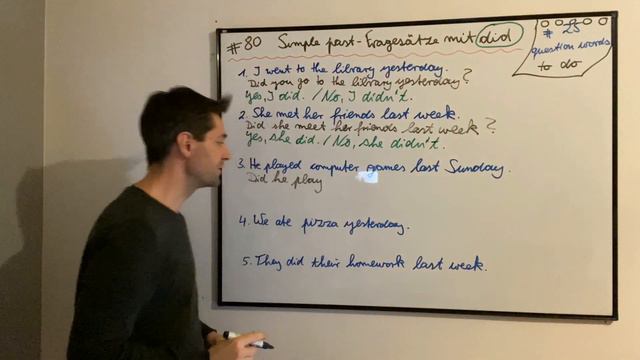 #80 Simple past-Fragesätze mit did
# 25
question words
to do
1. I went to the library yesterday.
Did you go to the library yesterday?
Yes, I did. / No, I didn't.
2. She met her friends last week.
Did she meet her friends last week?
Yes, she did. / No, she didn't.
3. He played computer games last Sunday.
Did he play
4. We ate pizza yesterday.
5. They did their homework last week.